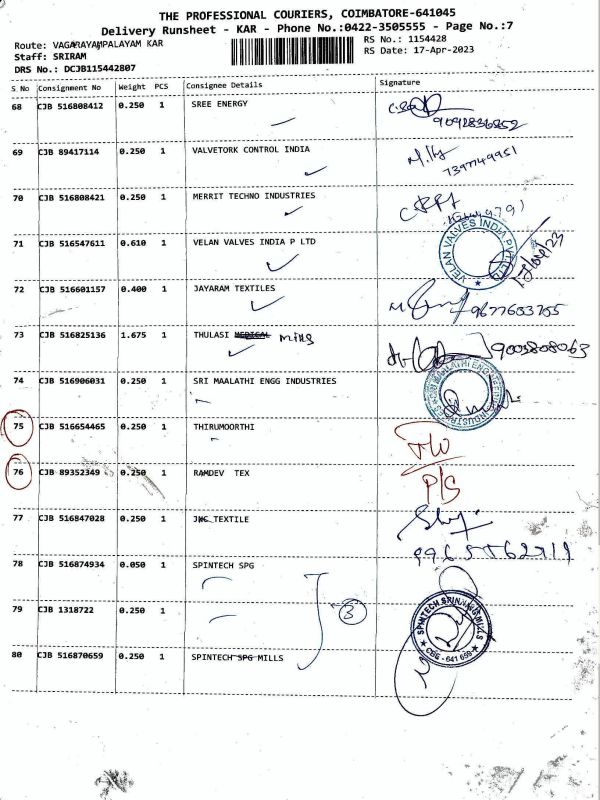 THE PROFESSIONAL COURIERS, COIMBATORE-641045
Delivery Runsheet - KAR - Phone No.:0422-3505555 - Page No.:7
Route: VAGARAYAMPALAYAM KAR
RS No.: 1154428
Staff: SRIRAM
RS Date: 17-Apr-2023
DRS No.: DCJB115442807
S.No Consignment No Weight PCS Consignee Details Signature
68 CJB 516808412 0.250 1 SREE ENERGY
69 CJB 89417114 0.250 1 VALVETORK CONTROL INDIA
7397749951
70 CJB 516808421 0.250 1 MERRIT TECHNO INDUSTRIES
71 CJB 516547611 0.610 1 VELAN VALVES INDIA P LTD
VELAN VALVES INDIA PVT LTD
72 CJB 516601157 0.400 1 JAYARAM TEXTILES
9677603705
73 CJB 516825136 1.675 1 THULASI MEDICAL mills
9003808063
74 CJB 516906031 0.250 1 SRI MAALATHI ENGG INDUSTRIES
75 CJB 516654465 0.250 1 THIRUMOORTHI
76 CJB 89352349 0.250 1 RAMDEV TEX
P/S
77 CJB 516847028 0.250 1 JKC TEXTILE
78 CJB 516874934 0.050 1 SPINTECH SPG
79 CJB 1318722 0.250 1
3
SPINTECH SPINNING MILLS
CBE - 641 659
80 CJB 516870659 0.250 1 SPINTECH SPG MILLS